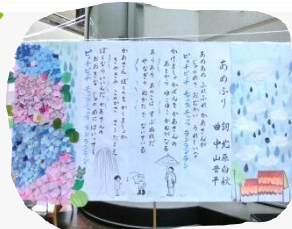 あめふり
詞 北原白秋
曲 中山晋平
あめあめ ふれふれ かあさんが
じゃのめで おむかえ うれしいな
ピッチピッチ チャップチャップ ランランラン
かけましょ かばんを かあさんの
あとから ゆこゆこ かねがなる
あらあら あのこは ずぶぬれだ
やなぎの ねかたで ないている
かあさん ぼくのを かしましょか
きみきみ このかさ さしたまえ
ぼくなら いいんだ かあさんの
おおきな じゃのめに はいってく
ピッチピッチ チャップチャップ ランランラン